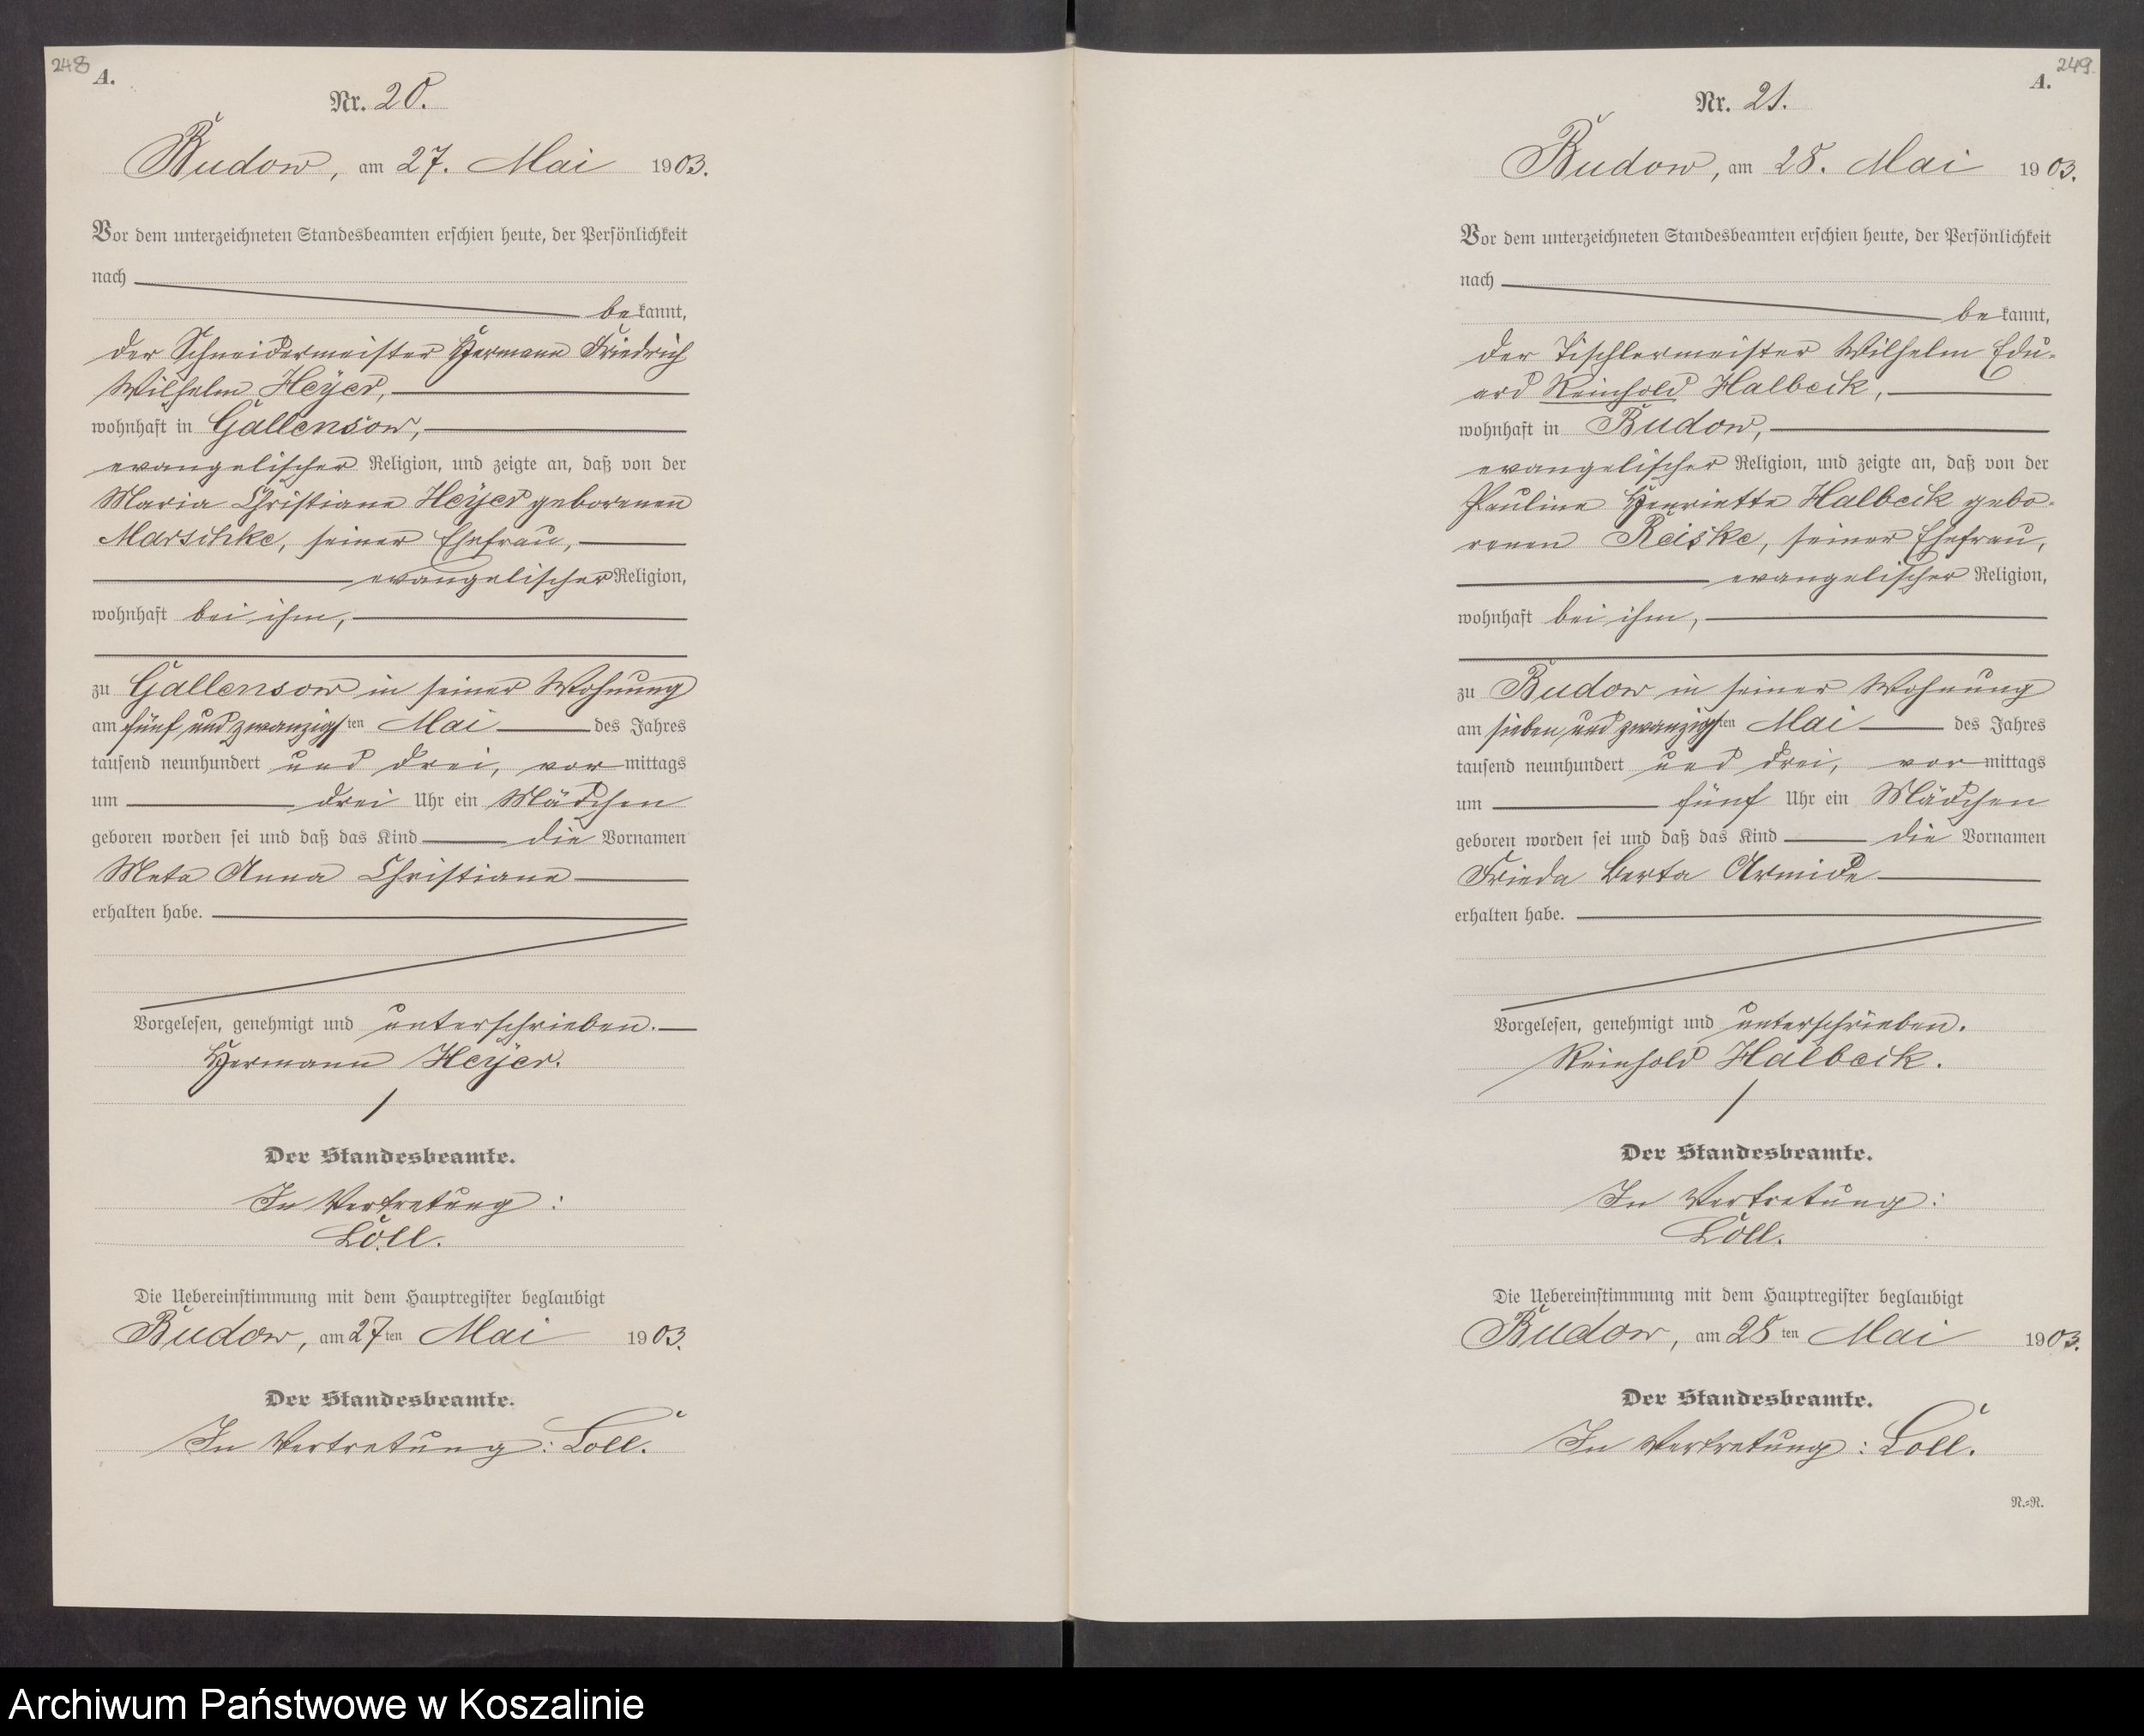 248
A.
Nr. 20.
Budow, am 27. Mai 1903.
Vor dem unterzeichneten Standesbeamten erschien heute, der Persönlichkeit
nach
bekannt,
der Schneidermeister Hermann Friedrich
Wilhelm Heyer,
wohnhaft in Gallensow,
evangelischer Religion, und zeigte an, daß von der
Maria Christiane Heyer geborenen
Marschke, seiner Ehefrau,
evangelischer Religion,
wohnhaft bei ihm,
zu Gallensow in seiner Wohnung
am fünf und zwanzigsten Mai des Jahres
tausend neunhundert und drei, vormittags
um drei Uhr ein Mädchen
geboren worden sei und daß das Kind die Vornamen
Meta Anna Christiane
erhalten habe.
Vorgelesen, genehmigt und unterschrieben.
Hermann Heyer.
Der Standesbeamte.
In Vertretung:
Loll.
Die Uebereinstimmung mit dem Hauptregister beglaubigt
Budow, am 27ten Mai 1903.
Der Standesbeamte.
In Vertretung: Loll.
249.
A.
Nr. 21.
Budow, am 28. Mai 1903.
Vor dem unterzeichneten Standesbeamten erschien heute, der Persönlichkeit
nach
bekannt,
der Tischlermeister Wilhelm Edu-
ard Reinhold Halbeck,
wohnhaft in Budow,
evangelischer Religion, und zeigte an, daß von der
Pauline Henriette Halbeck gebo-
renen Reiske, seiner Ehefrau,
evangelischer Religion,
wohnhaft bei ihm,
zu Budow in seiner Wohnung
am sieben und zwanzigsten Mai des Jahres
tausend neunhundert und drei, vormittags
um fünf Uhr ein Mädchen
geboren worden sei und daß das Kind die Vornamen
Frieda Berta Armide
erhalten habe.
Vorgelesen, genehmigt und unterschrieben.
Reinhold Halbeck.
Der Standesbeamte.
In Vertretung:
Loll.
Die Uebereinstimmung mit dem Hauptregister beglaubigt
Budow, am 28ten Mai 1903.
Der Standesbeamte.
In Vertretung: Loll.
N.-R.
Archiwum Państwowe w Koszalinie